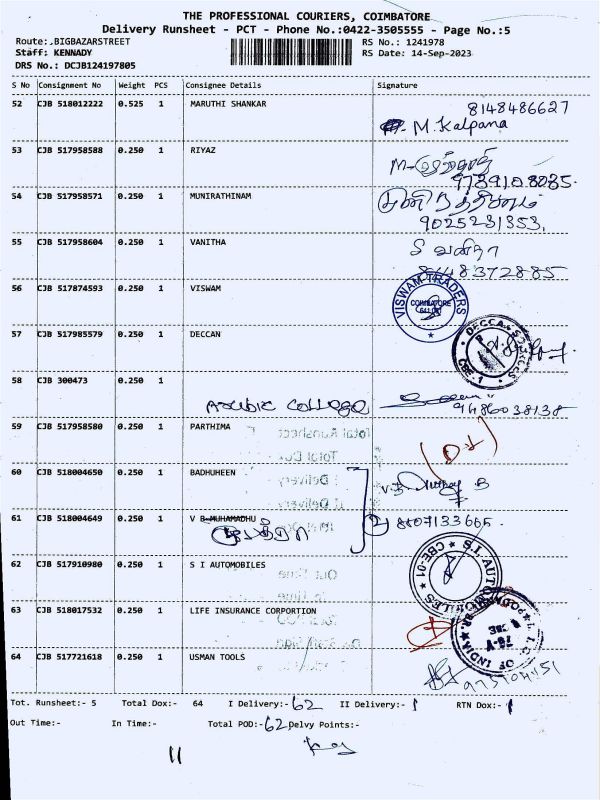 THE PROFESSIONAL COURIERS, COIMBATORE
Delivery Runsheet - PCT - Phone No.:0422-3505555 - Page No.:5
Route:.BIGBAZARSTREET
RS No.: 1241978
Staff: KENNADY
RS Date: 14-Sep-2023
DRS No.: DCJB124197805
S No Consignment No Weight PCS Consignee Details Signature
52 CJB 518012222 0.525 1 MARUTHI SHANKAR 8148486627
M. Kalpana
53 CJB 517958588 0.250 1 RIYAZ
54 CJB 517958571 0.250 1 MUNIRATHINAM
9025231353
55 CJB 517958604 0.250 1 VANITHA
8148372885
56 CJB 517874593 0.250 1 VISWAM VISWAM TRADERS
COIMBATORE
57 CJB 517985579 0.250 1 DECCAN
CBE-1
58 CJB 300473 0.250 1
Arabic College 9486038138
59 CJB 517958580 0.250 1 PARTHIMA
60 CJB 518004650 0.250 1 BADHUHEEN
61 CJB 518004649 0.250 1 V B MUHAMADHU
62 CJB 517910980 0.250 1 S I AUTOMOBILES S.I. AUTOMOBILES
CBE-01
63 CJB 518017532 0.250 1 LIFE INSURANCE CORPORTION L.I.C OF INDIA
64 CJB 517721618 0.250 1 USMAN TOOLS
Tot. Runsheet:- 5 Total Dox:- 64 I Delivery:- 62 II Delivery:- 1 RTN Dox:- 1
Out Time:- In Time:- Total POD:- 62 Delvy Points:-
11